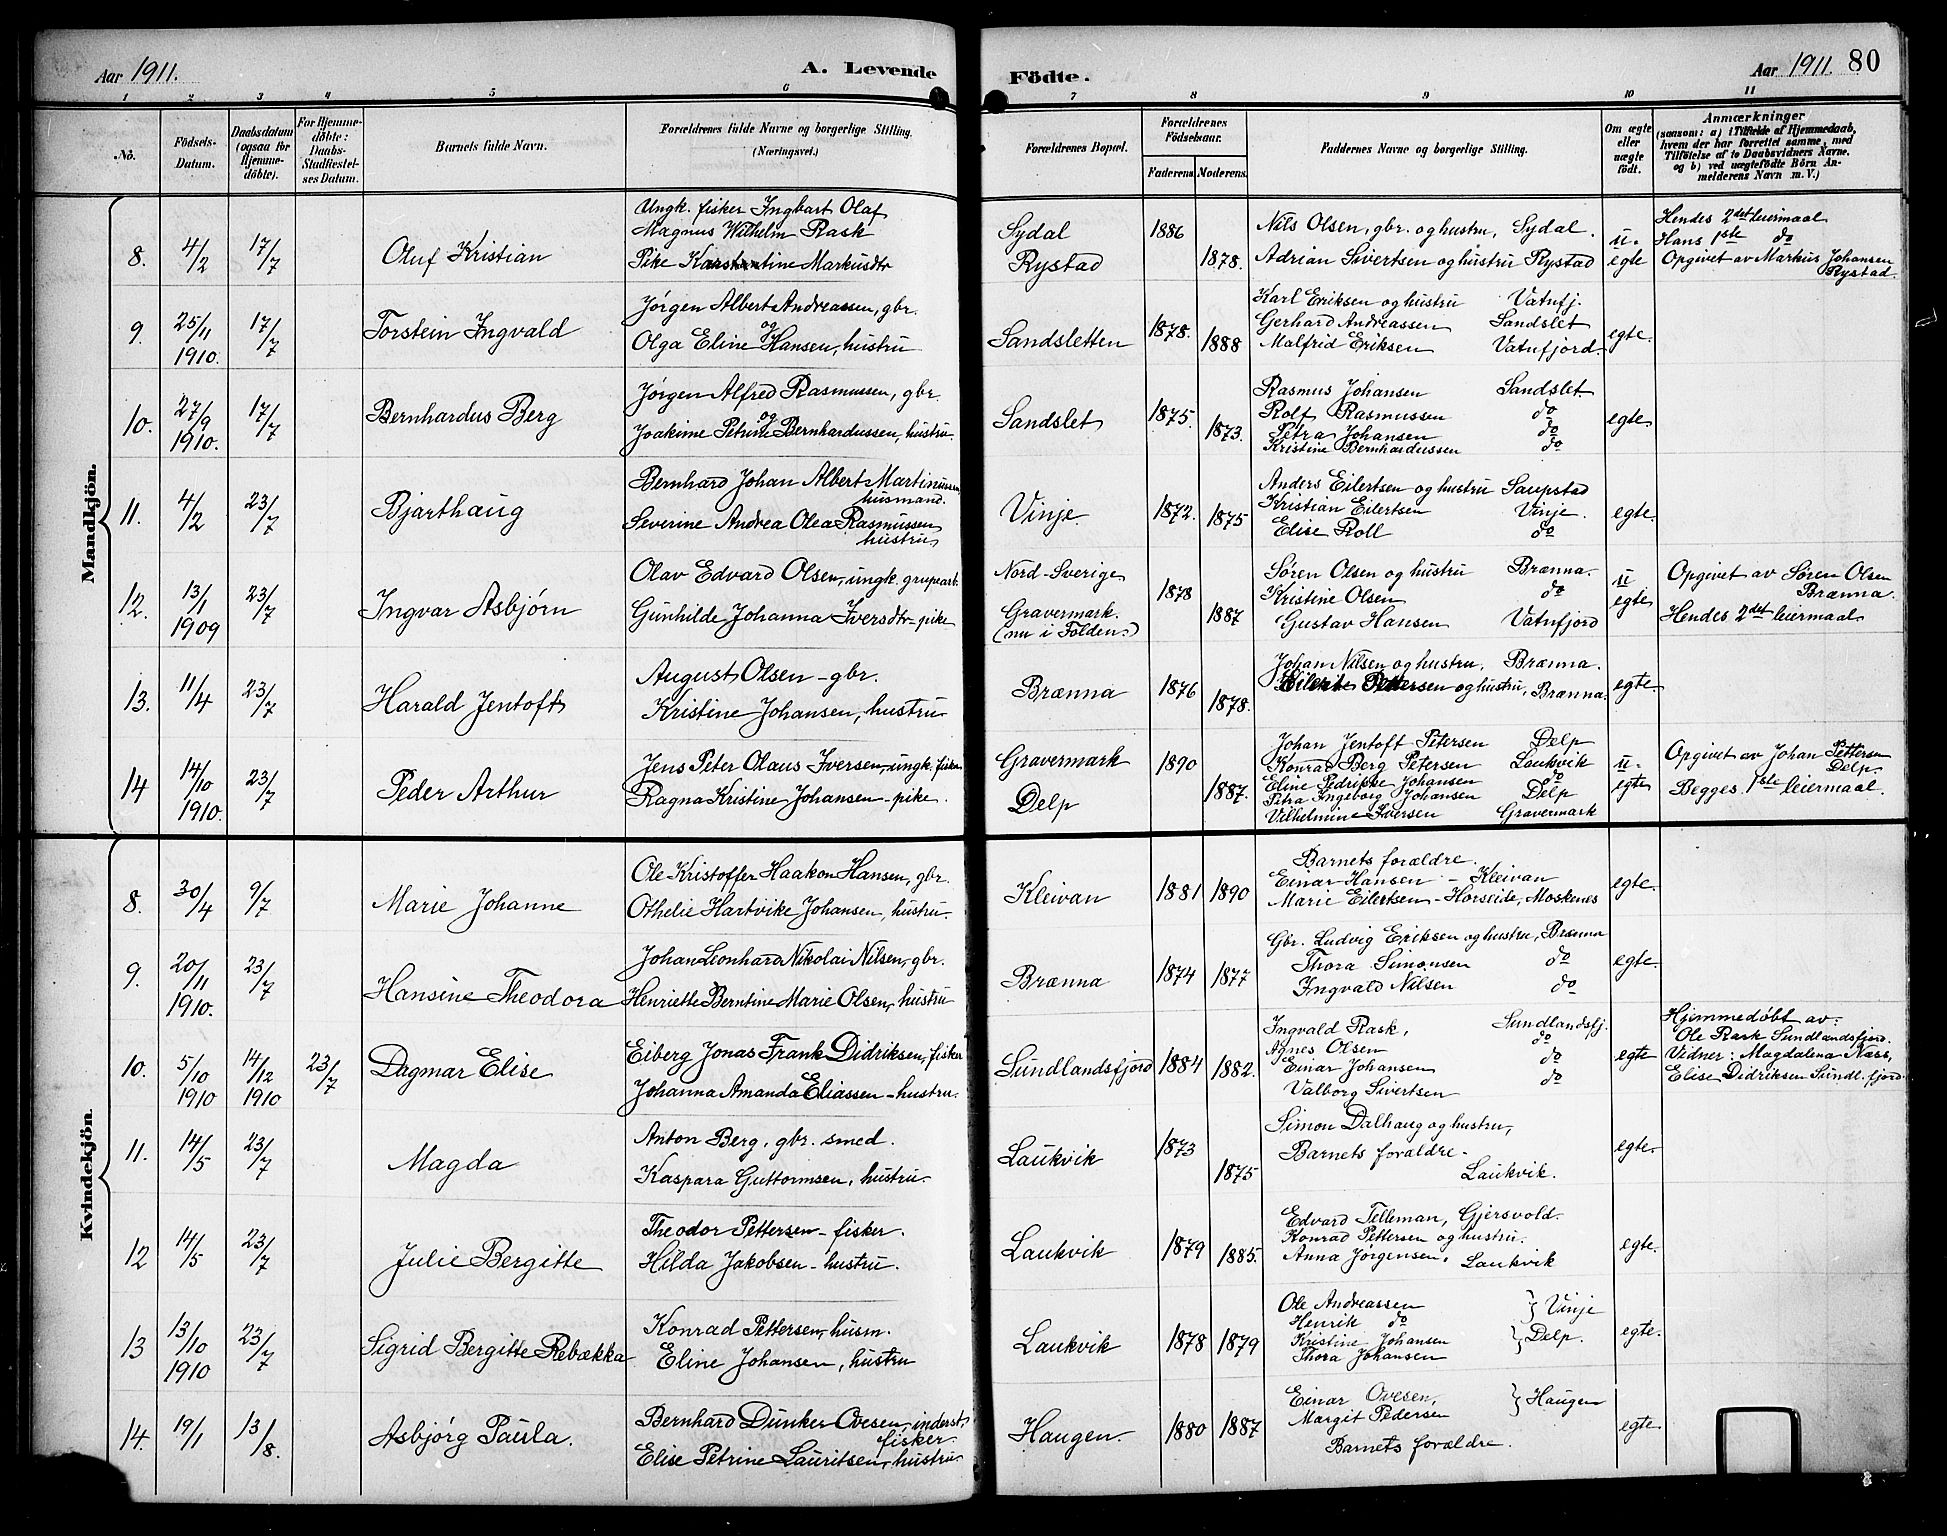 Aar 1911. A. Levende Födte. Aar 1911. 80
1 2 3 4 5 6 7 8 9 10 11
No. Födsels-Datum. Daabsdatum (ogsaa for Hjemmedöbte). For Hjemmedöbte: Daabs-Stadfæstelses Datum. Barnets fulde Navn. Forældrenes fulde Navne og borgerlige Stilling. (Næringsvei.) Forældrenes Bopæl. Forældrenes Födselsaar. Faderens. Moderens. Faddernes Navne og borgerlige Stilling. Om ægte eller uægte födt. Anmærkninger (saasom: a) i Tilfælde af Hjemmedaab, hvem der har forrettet samme, med Tilföielse af to Daabsvidners Navne. og b) ved uægtefödte Börn Anmelderens Navn m. V.)
Mandkjön.
8. 4/2 17/7 Oluf Kristian
Ungk. fisker Ingbart Olaf
Magnus Wilhelm Rask
Pike Karstantine Markusdtr
Sydal
Rystad
1886 1878.
Nils Olsen, gbr. og hustru, Sydal.
Adrian Sivertsen og hustru Rystad
u-egte
Hendes 2det leiermaal
Hans 1ste do
Opgivet av Markus Johansen Rystad.
9. 25/11 1910. 17/7 Torstein Ingvald
Jörgen Albert Andreassen, gbr.
og
Olga Eline Hansen, hustru
Sandsletten 1878. 1888
Karl Eriksen og hustru Vatnfj.
Gerhard Andreassen Sandslet
Malfrid Eriksen Vatnfjord.
egte.
10. 27/9 1910. 17/7 Bernhardus Berg
Jörgen Alfred Rasmussen, gbr.
og
Joakime Petrine Bernhardussen, hustru.
Sandslet 1875. 1873.
Rasmus Johansen Sandslet.
Rolf Rasmussen do
Petra Johansen do
Kristine Bernhardussen do
egte.
11. 4/2 23/7 Bjarthaug
Bernhard Johan Albert Martinussen,
husmand.
Severine Andrea Olea Rasmussen
hustru
Vinje. 1872. 1875
Anders Eilertsen og hustru Saupstad
Kristian Eilertsen Vinje.
Elise Roll do
egte.
12. 13/1 1909 23/7 Ingvar Asbjørn
Olav Edvard Olsen, ungk. grupearb.
Gunhilde Johanna Iversdtr pike
Nord-Sverige
Gravermark.
(nu i Folden)
1878 1887
Søren Olsen og hustru Brænna.
Kristine Olsen do
Gustav Hansen Vatnfjord
u egte
Opgivet av Søren Olsen
Brænna.
Hendes 2det leiermaal
13. 11/4 23/7 Harald Jentoft
August Olsen - gbr.
Kristine Johansen, hustru
Brænna 1876 1878.
Johan Nilsen og hustru, Brænna.
Pettersen og hustru, Brænna.
egte.
14 14/10 1910. 23/7 Peder Arthur
Jens Peter Olaus Iversen, ungk. fisker
Ragna Kristine Johansen - pike.
Gravermark
Delp
1890 1887.
Johan Jentoft Petersen Delp
Konrad Berg Petersen Laukvik
Eline Pedrikke Johansen do
Petra Ingeborg Johansen Delp
Vilhelmine Iversen Gravermark
u-egte
Opgivet av Johan Pettersen
Delp.
Begges 1ste leiermaal.
Kvindekjön.
8. 30/4 9/7 Marie Johanne
Ole Kristoffer Haakon Hansen, gbr.
Othelie Hartvike Johansen, hustru.
Kleivan 1881 1890
Barnets forældre.
Einar Hansen - Kleivan
Marie Eilertsen - Horseide, Moskenes
egte.
9. 20/11 1910. 23/7 Hansine Theodora
Johan Leonhard Nikolai Nilsen, gbr.
Henriette Berntine Marie Olsen, hustru
Brænna 1874 1877
Gbr. Ludvig Eriksen og hustru, Brænna
Thora Simonsen do
Ingvald Nilsen do
egte.
10. 5/10 1910 14/12 1910 23/7 Dagmar Elise
Eiberg Jonas Frank Didriksen, fisker
Johanna Amanda Eliassen - hustru.
Sundlandsfjord 1884 1882.
Ingvald Rask, Sundlandsfj.
Agnes Olsen do
Einar Johansen do
Valborg Sivertsen do
egte
Hjemmedøbt av:
Ole Rask Sundlandsfjord.
Vidner: Magdalena Næss,
Elise Didriksen Sundl.fjord.
11. 14/5 23/7 Magda
Anton Berg, gbr. smed.
Kaspara Guttormsen, hustru.
Laukvik 1873 1875
Simon Dalhaug og hustru,
Barnets forældre -
Laukvik.
egte.
12 14/5 23/7 Julie Bergitte
Theodor Pettersen - fisker.
Hilda Jakobsen - hustru.
Laukvik 1879 1885.
Edvard Telleman, Gjersvold.
Konrad Pettersen og hustru.
Anna Jørgensen. Laukvik
egte.
13 13/10 1910 23/7 Sigrid Bergitte Rebækka
Konrad Pettersen, husm.
Eline Johansen, hustru
Laukvik 1878 1879
Ole Andreassen } Vinje
Henrik do
Kristine Johansen } Delp.
Thora Johansen
egte.
14. 19/1 13/8. Asbjørg Paula.
Bernhard Dunker Ovesen, inderst
fisker
Elise Petrine Lauritsen, hustru
Haugen. 1880 1887
Einar Ovesen, } Haugen
Margit Pedersen
Barnets forældre.
egte.